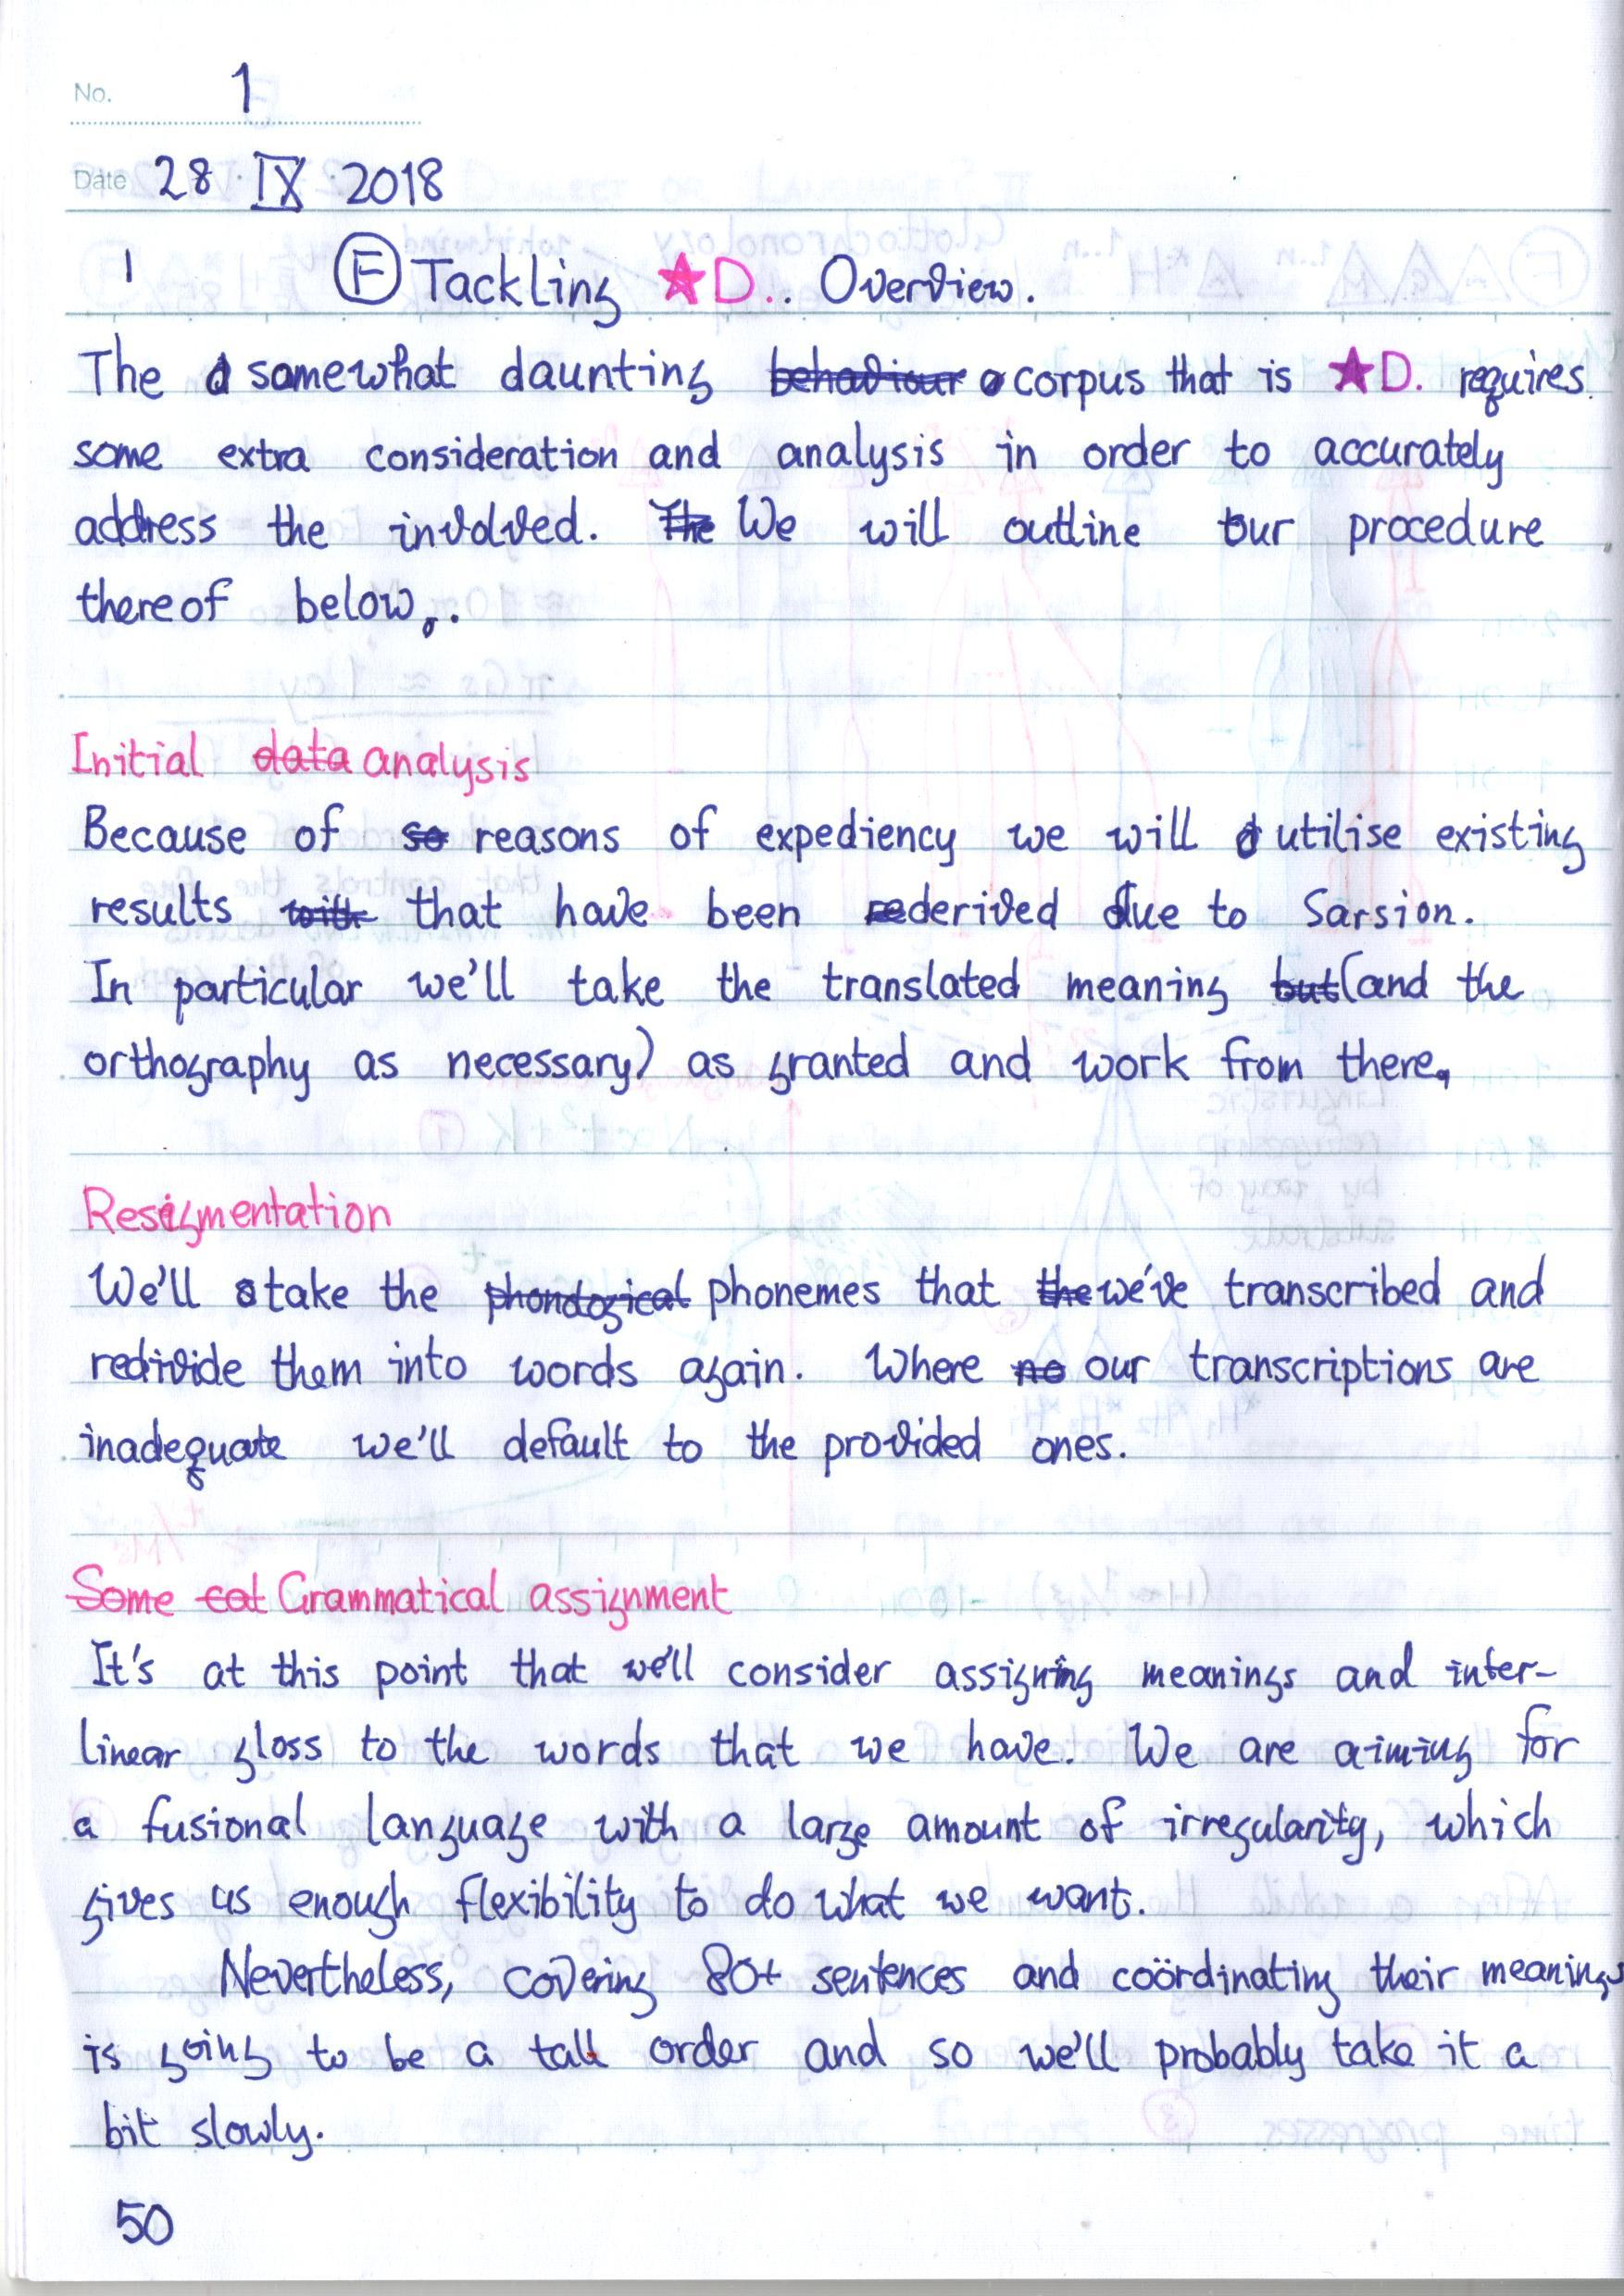 No. 1
Date 28 · IX · 2018
1 Ⓕ Tackling ★D.. Overview.
The somewhat daunting behaviour corpus that is ★D. requires.
some extra consideration and analysis in order to accurately
address the involved. The We will outline our procedure
thereof below,.
Initial data analysis
Because of so reasons of expediency we will utilise existing
results with that have been rederived due to Sarsion.
In particular we'll take the translated meaning but (and the
orthography as necessary) as granted and work from there.
Resegmentation
We'll take the phonological phonemes that the we've transcribed and
redivide them into words again. Where no our transcriptions are
inadequate we'll default to the provided ones.
Some cat Grammatical assignment
It's at this point that we'll consider assigning meanings and inter-
linear gloss to the words that we have. We are aiming for
a fusional language with a large amount of irregularity, which
gives us enough flexibility to do what we want.
Nevertheless, covering 80+ sentences and coördinating their meanings
is going to be a tall order and so we'll probably take it a
bit slowly.
50